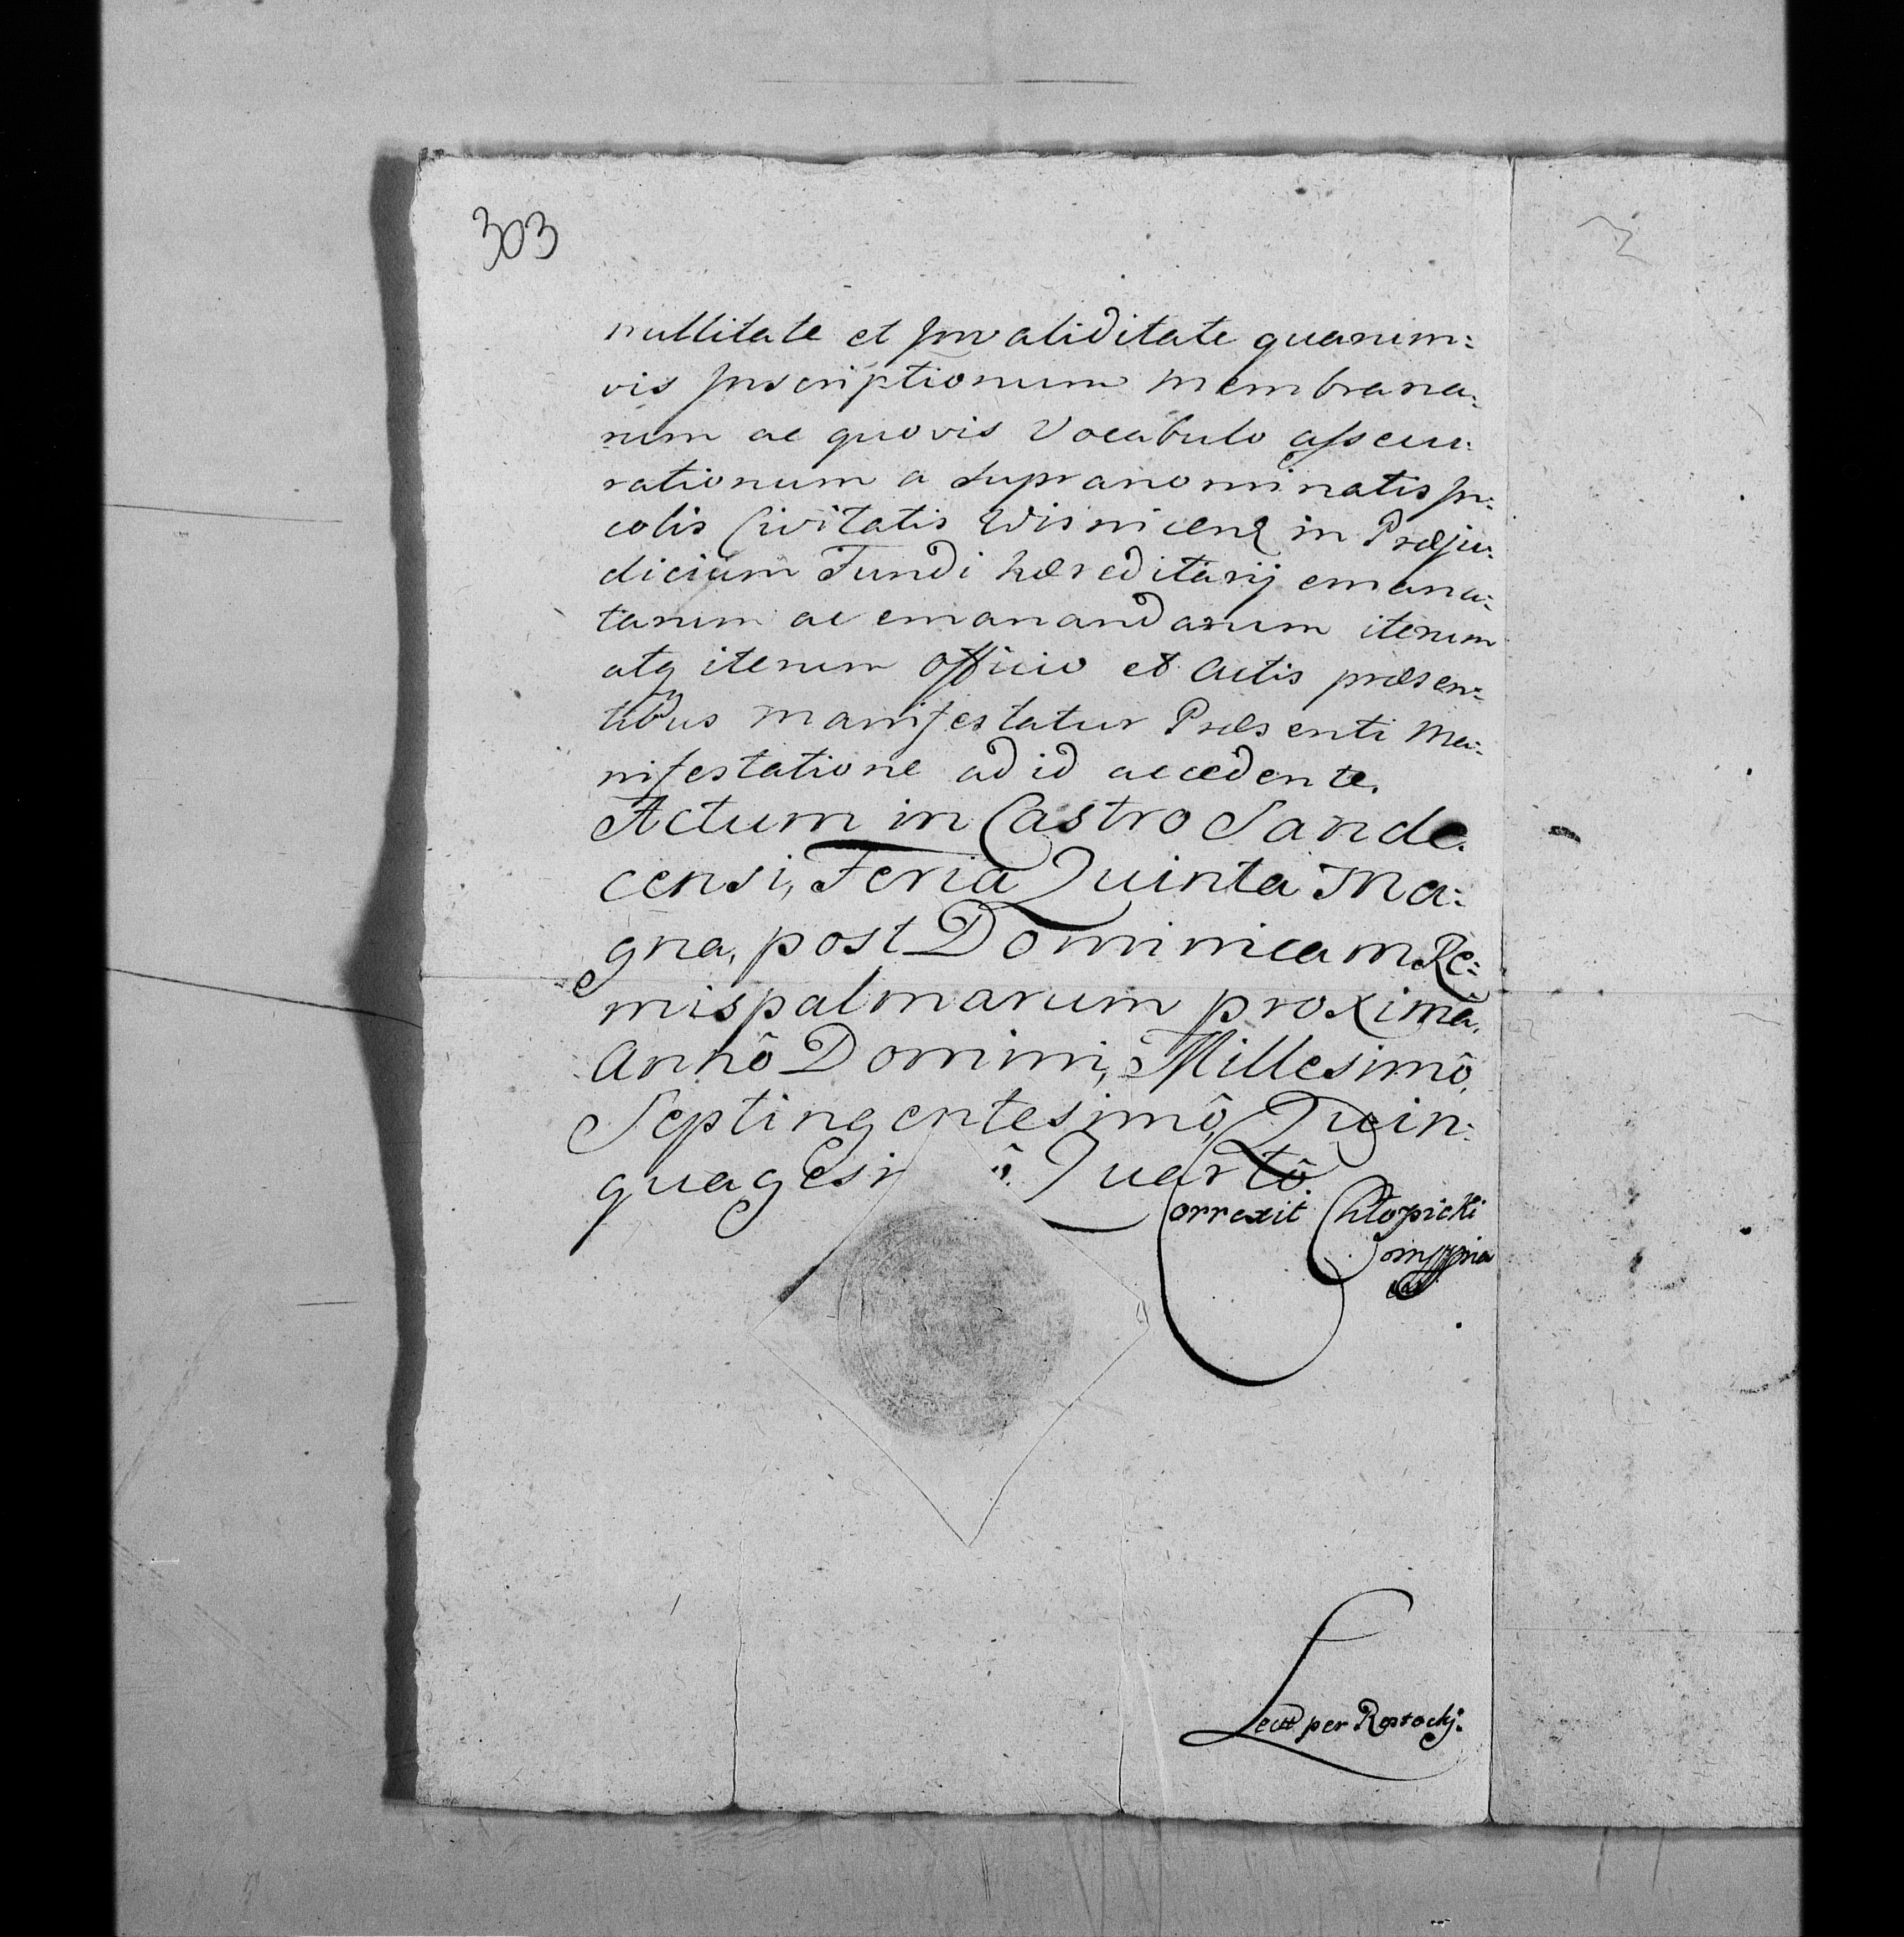 303
nullitate et Jnvaliditate quarum:
vis Jnscriptionum Membrana:
rum ac quovis Vocabulo assecu:
rationum a supranominatis Jn:
colis Civitatis Wisnicen in Præju:
dicium Fundi hæreditarij emana:
tarum ac emanandarum iterum
atq iterum Officio et Actis præsen:
tibus manifestatur Præsenti Ma:
nifestatione ad id accedente.
Actum in Castro Sande
censi, Feria Quinta Ma:
gna, post Dominicam Re:
mispalmarum proxima,
Annô Domini, Millesimô,
Septingentesimô, Quin:
quagesi ô. Quartô
Correxit Chłopicki
Lect per Rostocki: